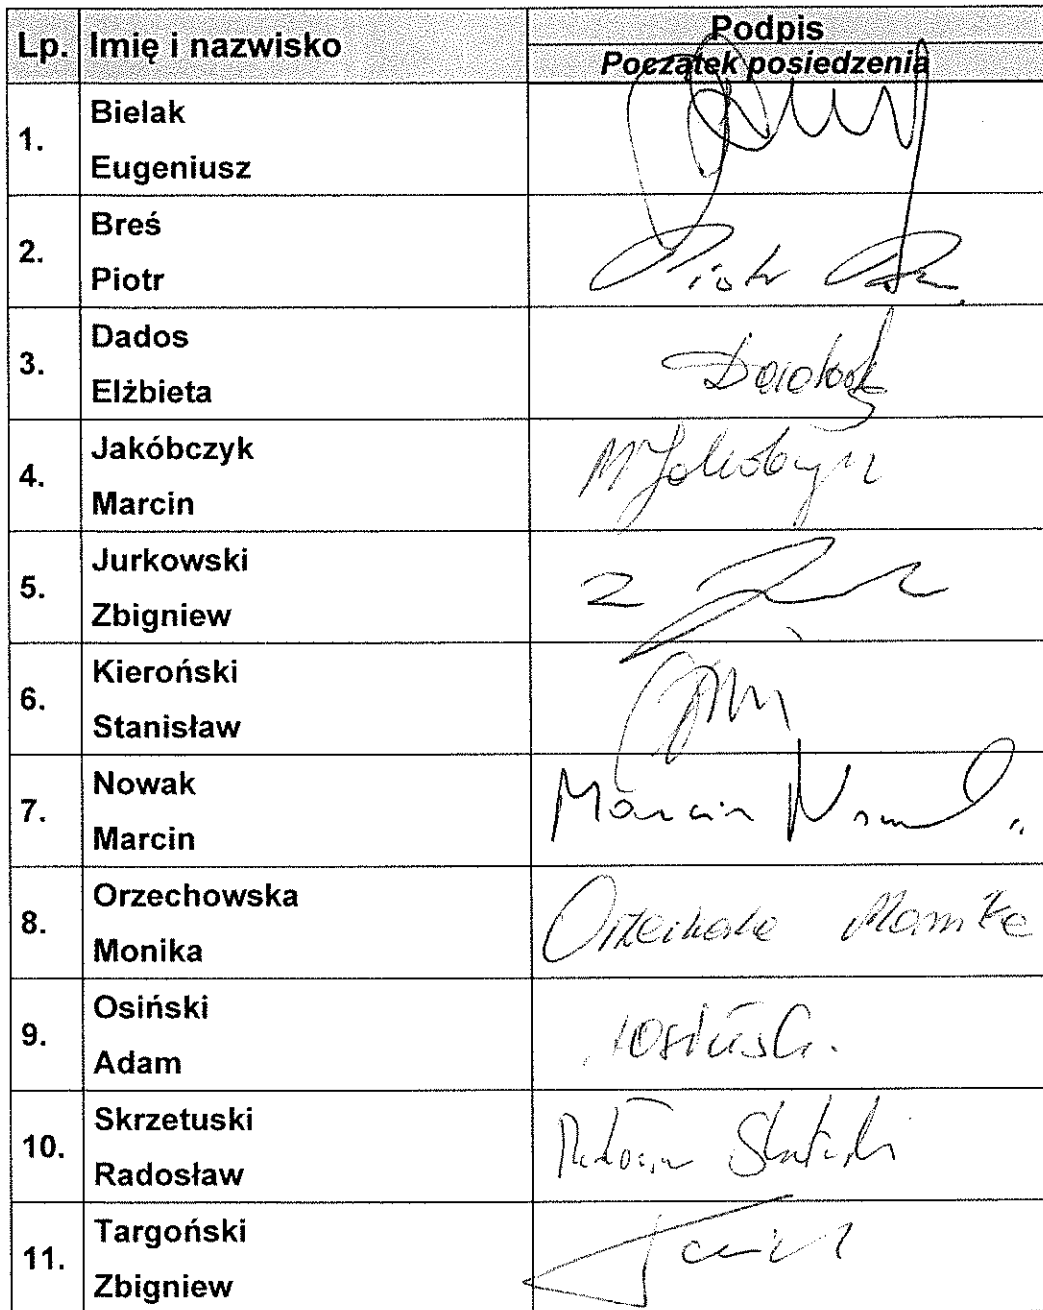 Lp. Imię i nazwisko Podpis
Początek posiedzenia
1. Bielak
Eugeniusz
2. Breś
Piotr
Piotr
3. Dados
Elżbieta
4. Jakóbczyk
Marcin
5. Jurkowski
Zbigniew
6. Kieroński
Stanisław
7. Nowak
Marcin
Marcin Nowak
8. Orzechowska
Monika
Monika
9. Osiński
Adam
10. Skrzetuski
Radosław
11. Targoński
Zbigniew